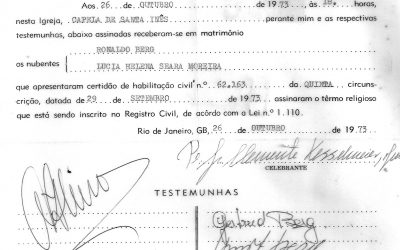 Aos 26 de OUTUBRO de 19 73, às horas,
nesta Igreja, CAPELA DE SANTA INÊS perante mim e as respectivas
testemunhas, abaixo assinadas receberam-se em matrimônio
RONALDO BERG
os nubentes
LUCIA HELENA SEARA MOREIRA
que apresentaram certidão de habilitação civil n.º 62,263 da QUINTA circuns-
crição, datada de 29 SETEMBRO de 19 73. assinaram o têrmo religioso
que está sendo inscrito no Registro Civil, de acôrdo com a Lei n.º 1.110.
Rio de Janeiro, GB, 26 de OUTUBRO de 19 73
Clemente Kesselmeier
CELEBRANTE
TESTEMUNHAS
Gertrud Berg